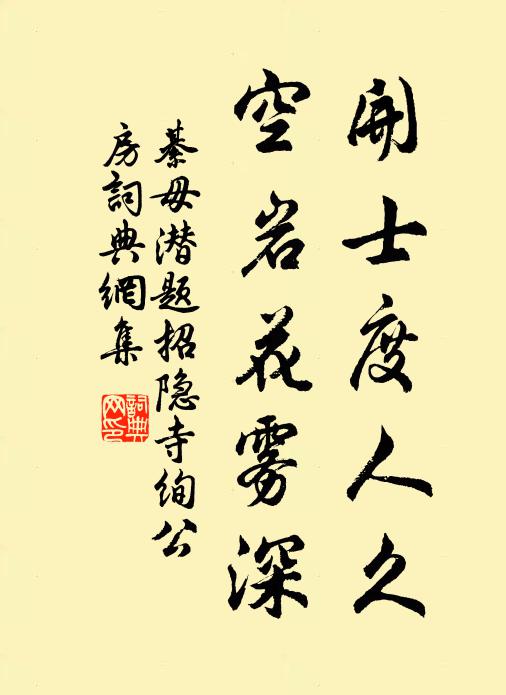 開士度人久
空岩花雾深
綦毋潜题招隐寺绚公
房詞典網集
詞典
网印